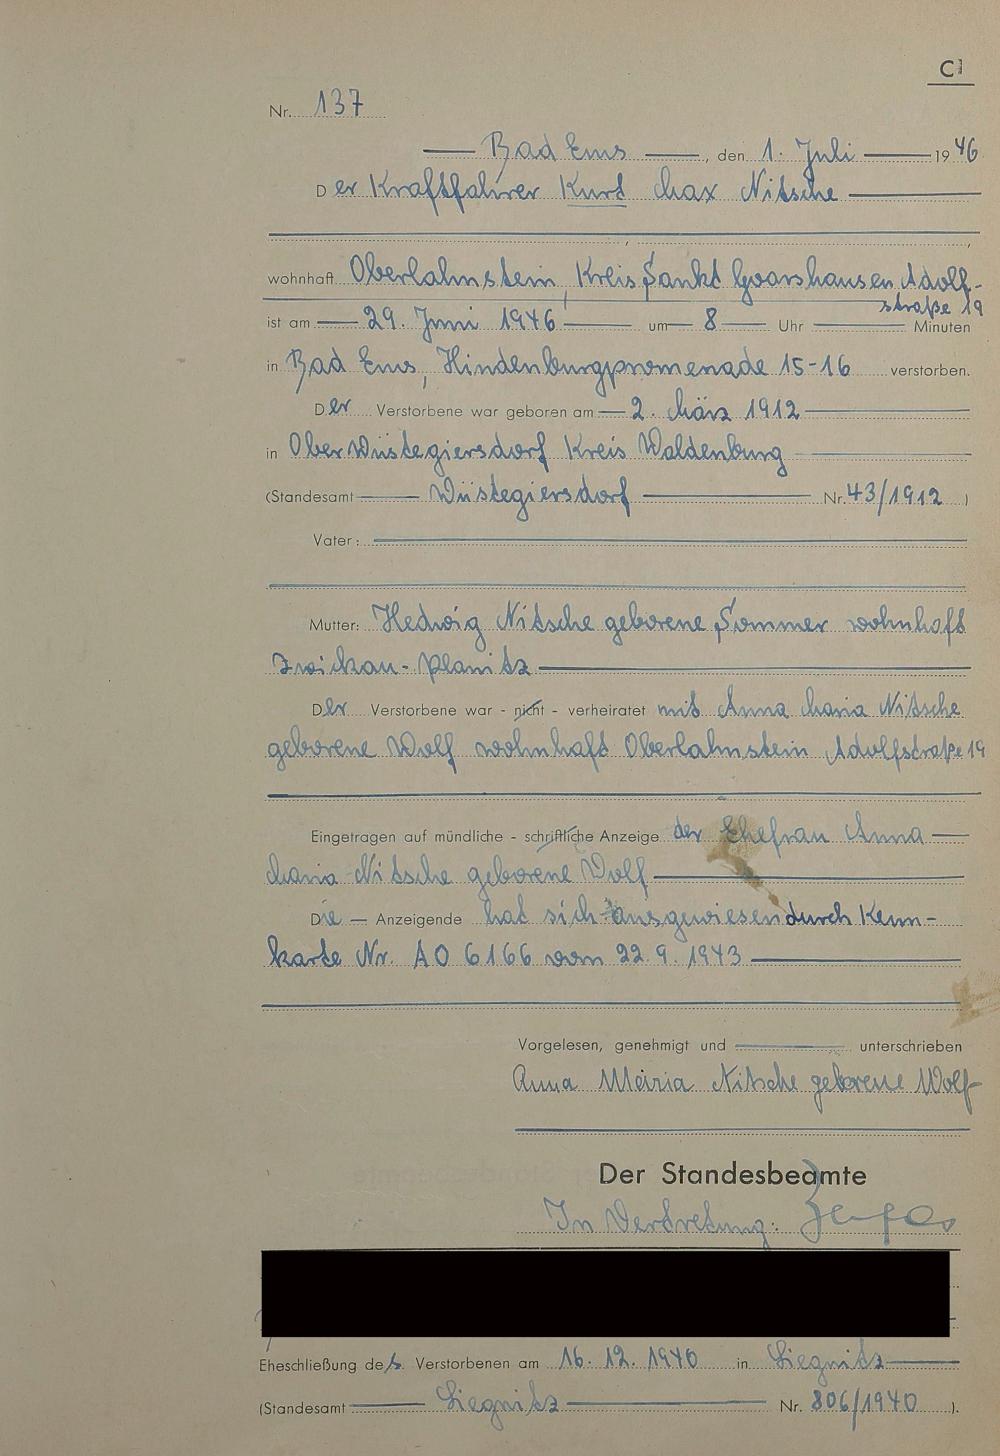 C1
Nr. 137
Bad Ems, den 1. Juli 1946
Der Kraftfahrer Kurt Max Nitsche
wohnhaft Oberlahnstein, Kreis Sankt Goarshausen, Adolf-
straße 19
ist am 29. Juni 1946 um 8 Uhr Minuten
in Bad Ems, Hindenburgpromenade 15-16 verstorben.
Der Verstorbene war geboren am 2. März 1912
in Ober Wüstegiersdorf Kreis Waldenburg
(Standesamt Wüstegiersdorf Nr. 43/1912)
Vater:
Mutter: Hedwig Nitsche geborene Sommer wohnhaft
Zwickau-Planitz
Der Verstorbene war - nicht - verheiratet mit Anna Maria Nitsche
geborene Wolf wohnhaft Oberlahnstein Adolfstraße 19
Eingetragen auf mündliche - schriftliche Anzeige der Ehefrau Anna
Maria Nitsche geborene Wolf
Die Anzeigende hat sich ausgewiesen durch Kenn-
karte Nr. AO 6166 vom 22.9.1943
Vorgelesen, genehmigt und unterschrieben
Anna Maria Nitsche geborene Wolf
Der Standesbeamte
In Vertretung:
Eheschließung des Verstorbenen am 16.12.1940 in Liegnitz
(Standesamt Liegnitz Nr. 806/1940).